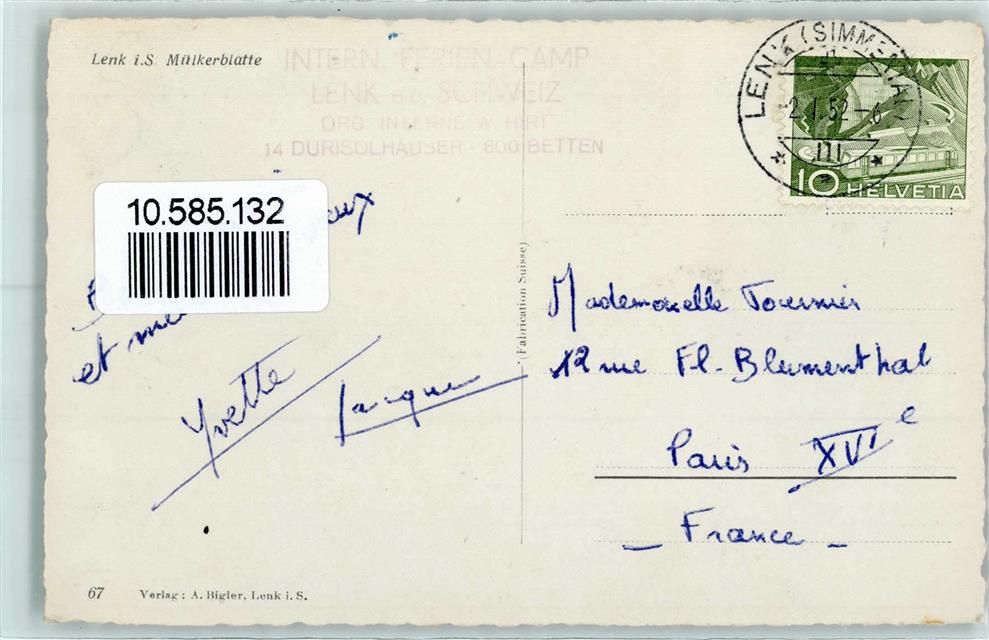 Lenk i.S. Mülkerblatte
INTERN. FERIEN-CAMP
LENK B.O. SCHWEIZ
ORG. INTERNE W. HIRT
14 DURISOLHÄUSER - 800 BETTEN
LENK (SIMMENTAL)
-2.1.52-6
10 HELVETIA
10.585.132
et
Yvette
Jacques
(Fabrication Suisse)
Mademoiselle Tournier
12 rue Fl. Blumenthal
Paris XVIe
_ France _
67 Verlag: A. Bigler, Lenk i. S.